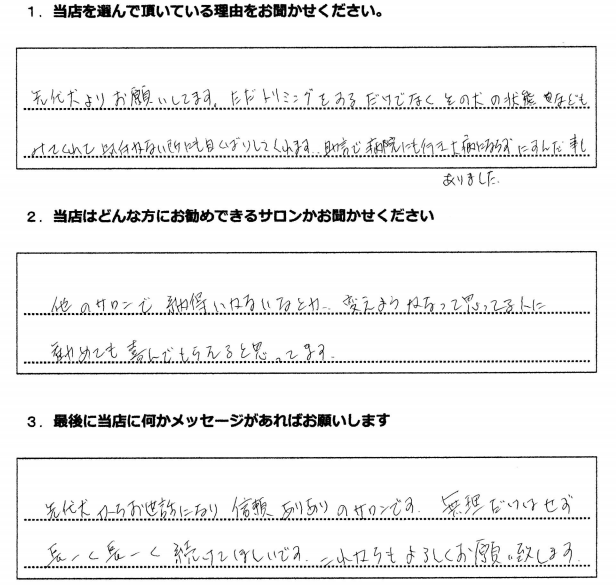 1．当店を選んで頂いている理由をお聞かせください。
先代犬よりお願いしてます。ただトリミングをするだけでなくその犬の状態なども
みてくれて 気付かない所にも目くばりしてくれます。助言で病院にも行き大病にならずにすんだ事も
ありました。
2．当店はどんな方にお勧めできるサロンかお聞かせください
他のサロンで納得いかないなとか、変えようかなって思ってる人に
勧めても喜んでもらえると思ってます。
3．最後に当店に何かメッセージがあればお願いします
先代犬からお世話になり信頼ありありのサロンです。無理だけはせず
長ーく長ーく続けてほしいです。これからもよろしくお願い致します。